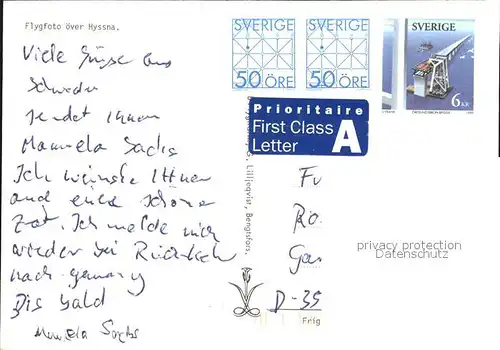 Flygfoto över Hyssna.
SVERIGE
50 ÖRE
SVERIGE
50 ÖRE
SVERIGE
6 KR
Prioritaire
First Class
Letter
A
Viele Grüsse aus
Schweden
sendet Ihnen
Manuela Sachs
Ich wünsche Ihnen
und eine schöne
Zeit. Ich melde mich
wieder bei Rückkehr
nach germany
Bis bald
Manuela Sachs
Lilljeqvist, Bengtsfors.
Ro
Gas
D-35
privacy protection
Datenschutz